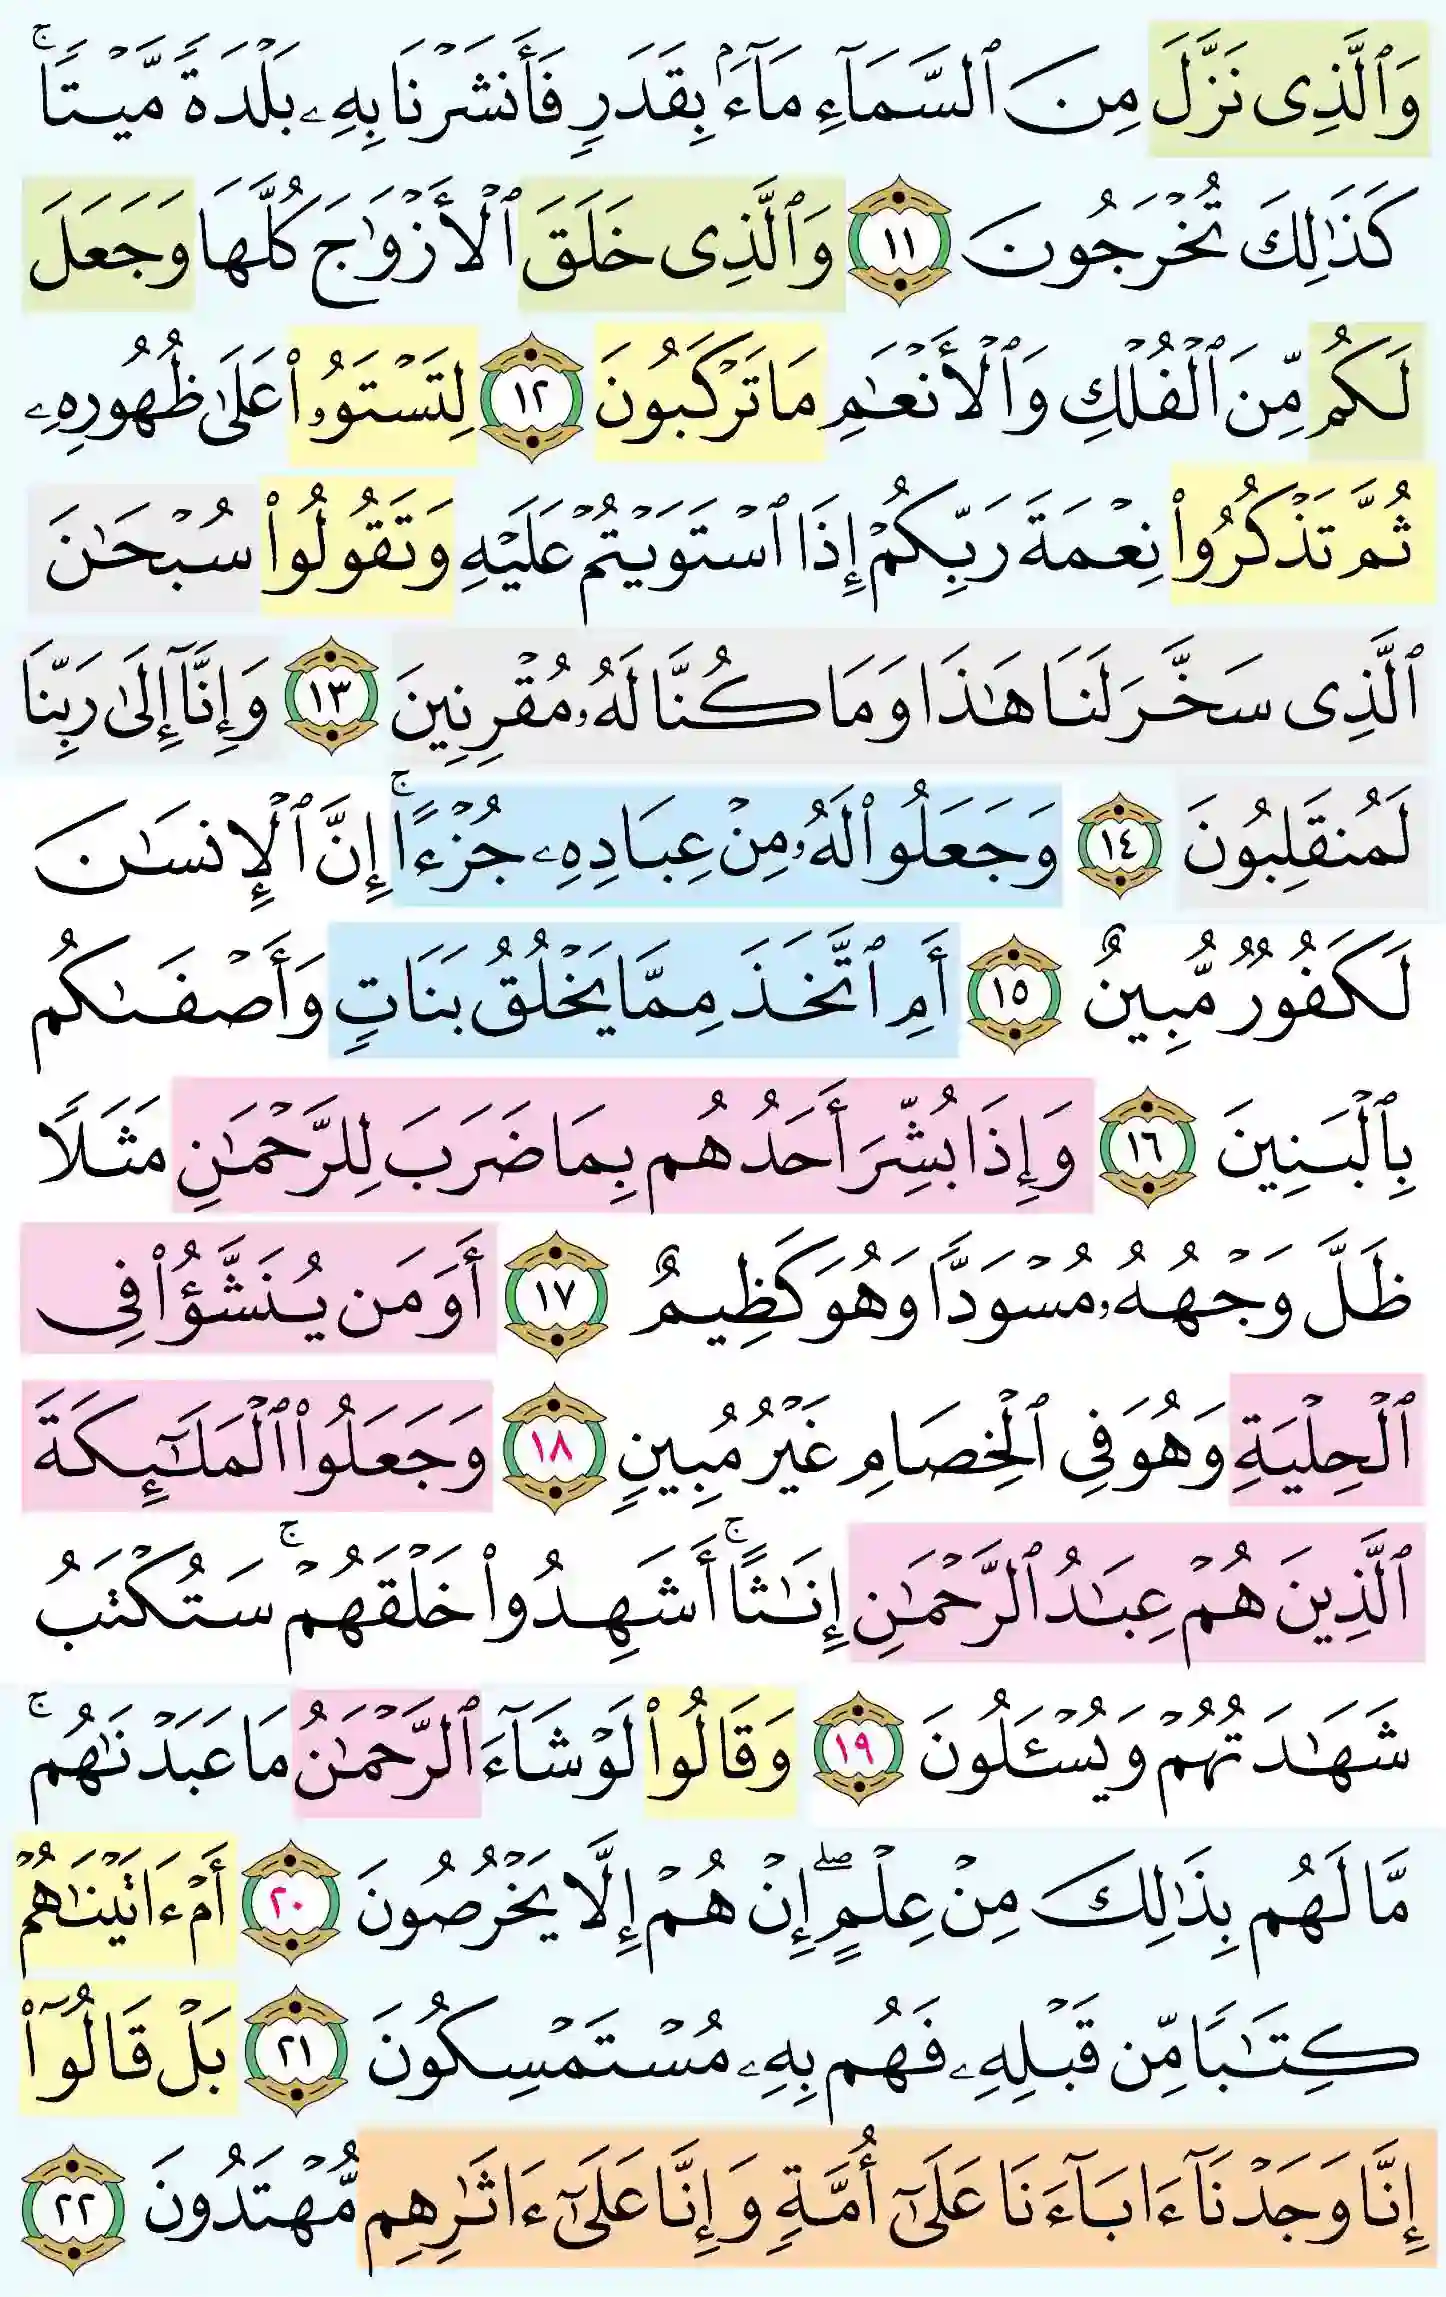 وَٱلَّذِى نَزَّلَ مِنَ ٱلسَّمَآءِ مَآءَۢ بِقَدَرٍ فَأَنشَرْنَا بِهِۦ بَلْدَةً مَّيْتًا ۚ
كَذَٰلِكَ تُخْرَجُونَ ١١ وَٱلَّذِى خَلَقَ ٱلْأَزْوَٰجَ كُلَّهَا وَجَعَلَ
لَكُم مِّنَ ٱلْفُلْكِ وَٱلْأَنْعَٰمِ مَا تَرْكَبُونَ ١٢ لِتَسْتَوُۥا۟ عَلَىٰ ظُهُورِهِۦ
ثُمَّ تَذْكُرُوا۟ نِعْمَةَ رَبِّكُمْ إِذَا ٱسْتَوَيْتُمْ عَلَيْهِ وَتَقُولُوا۟ سُبْحَٰنَ
ٱلَّذِى سَخَّرَ لَنَا هَٰذَا وَمَا كُنَّا لَهُۥ مُقْرِنِينَ ١٣ وَإِنَّآ إِلَىٰ رَبِّنَا
لَمُنقَلِبُونَ ١٤ وَجَعَلُوا۟ لَهُۥ مِنْ عِبَادِهِۦ جُزْءًا ۚ إِنَّ ٱلْإِنسَٰنَ
لَكَفُورٌ مُّبِينٌ ١٥ أَمِ ٱتَّخَذَ مِمَّا يَخْلُقُ بَنَاتٍ وَأَصْفَىٰكُم
بِٱلْبَنِينَ ١٦ وَإِذَا بُشِّرَ أَحَدُهُم بِمَا ضَرَبَ لِلرَّحْمَٰنِ مَثَلًا
ظَلَّ وَجْهُهُۥ مُسْوَدًّا وَهُوَ كَظِيمٌ ١٧ أَوَمَن يُنَشَّؤُا۟ فِى
ٱلْحِلْيَةِ وَهُوَ فِى ٱلْخِصَامِ غَيْرُ مُبِينٍ ١٨ وَجَعَلُوا۟ ٱلْمَلَٰٓئِكَةَ
ٱلَّذِينَ هُمْ عِبَٰدُ ٱلرَّحْمَٰنِ إِنَٰثًا ۚ أَشَهِدُوا۟ خَلْقَهُمْ ۚ سَتُكْتَبُ
شَهَٰدَتُهُمْ وَيُسْـَٔلُونَ ١٩ وَقَالُوا۟ لَوْ شَآءَ ٱلرَّحْمَٰنُ مَا عَبَدْنَٰهُم ۗ
مَّا لَهُم بِذَٰلِكَ مِنْ عِلْمٍ ۖ إِنْ هُمْ إِلَّا يَخْرُصُونَ ٢٠ أَمْ ءَاتَيْنَٰهُمْ
كِتَٰبًا مِّن قَبْلِهِۦ فَهُم بِهِۦ مُسْتَمْسِكُونَ ٢١ بَلْ قَالُوٓا۟
إِنَّا وَجَدْنَآ ءَابَآءَنَا عَلَىٰٓ أُمَّةٍ وَإِنَّا عَلَىٰٓ ءَاثَٰرِهِم مُّهْتَدُونَ ٢٢